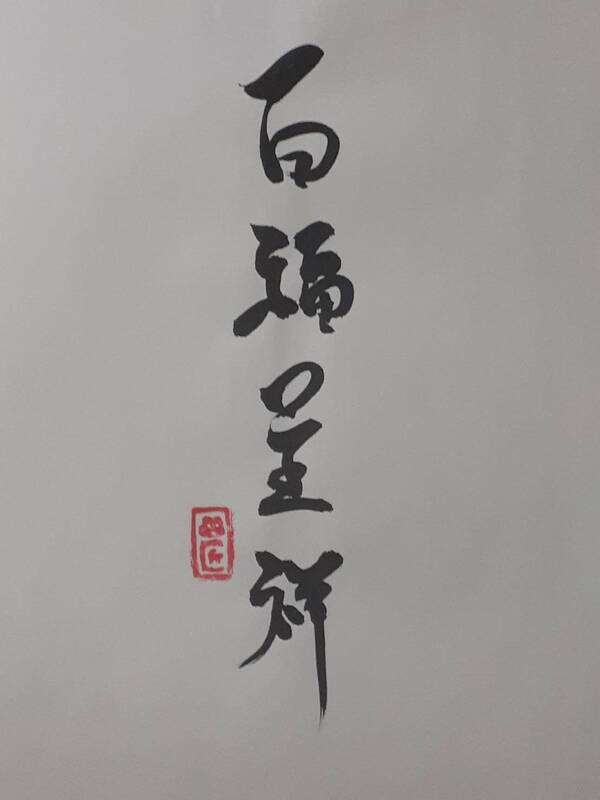 百福呈祥